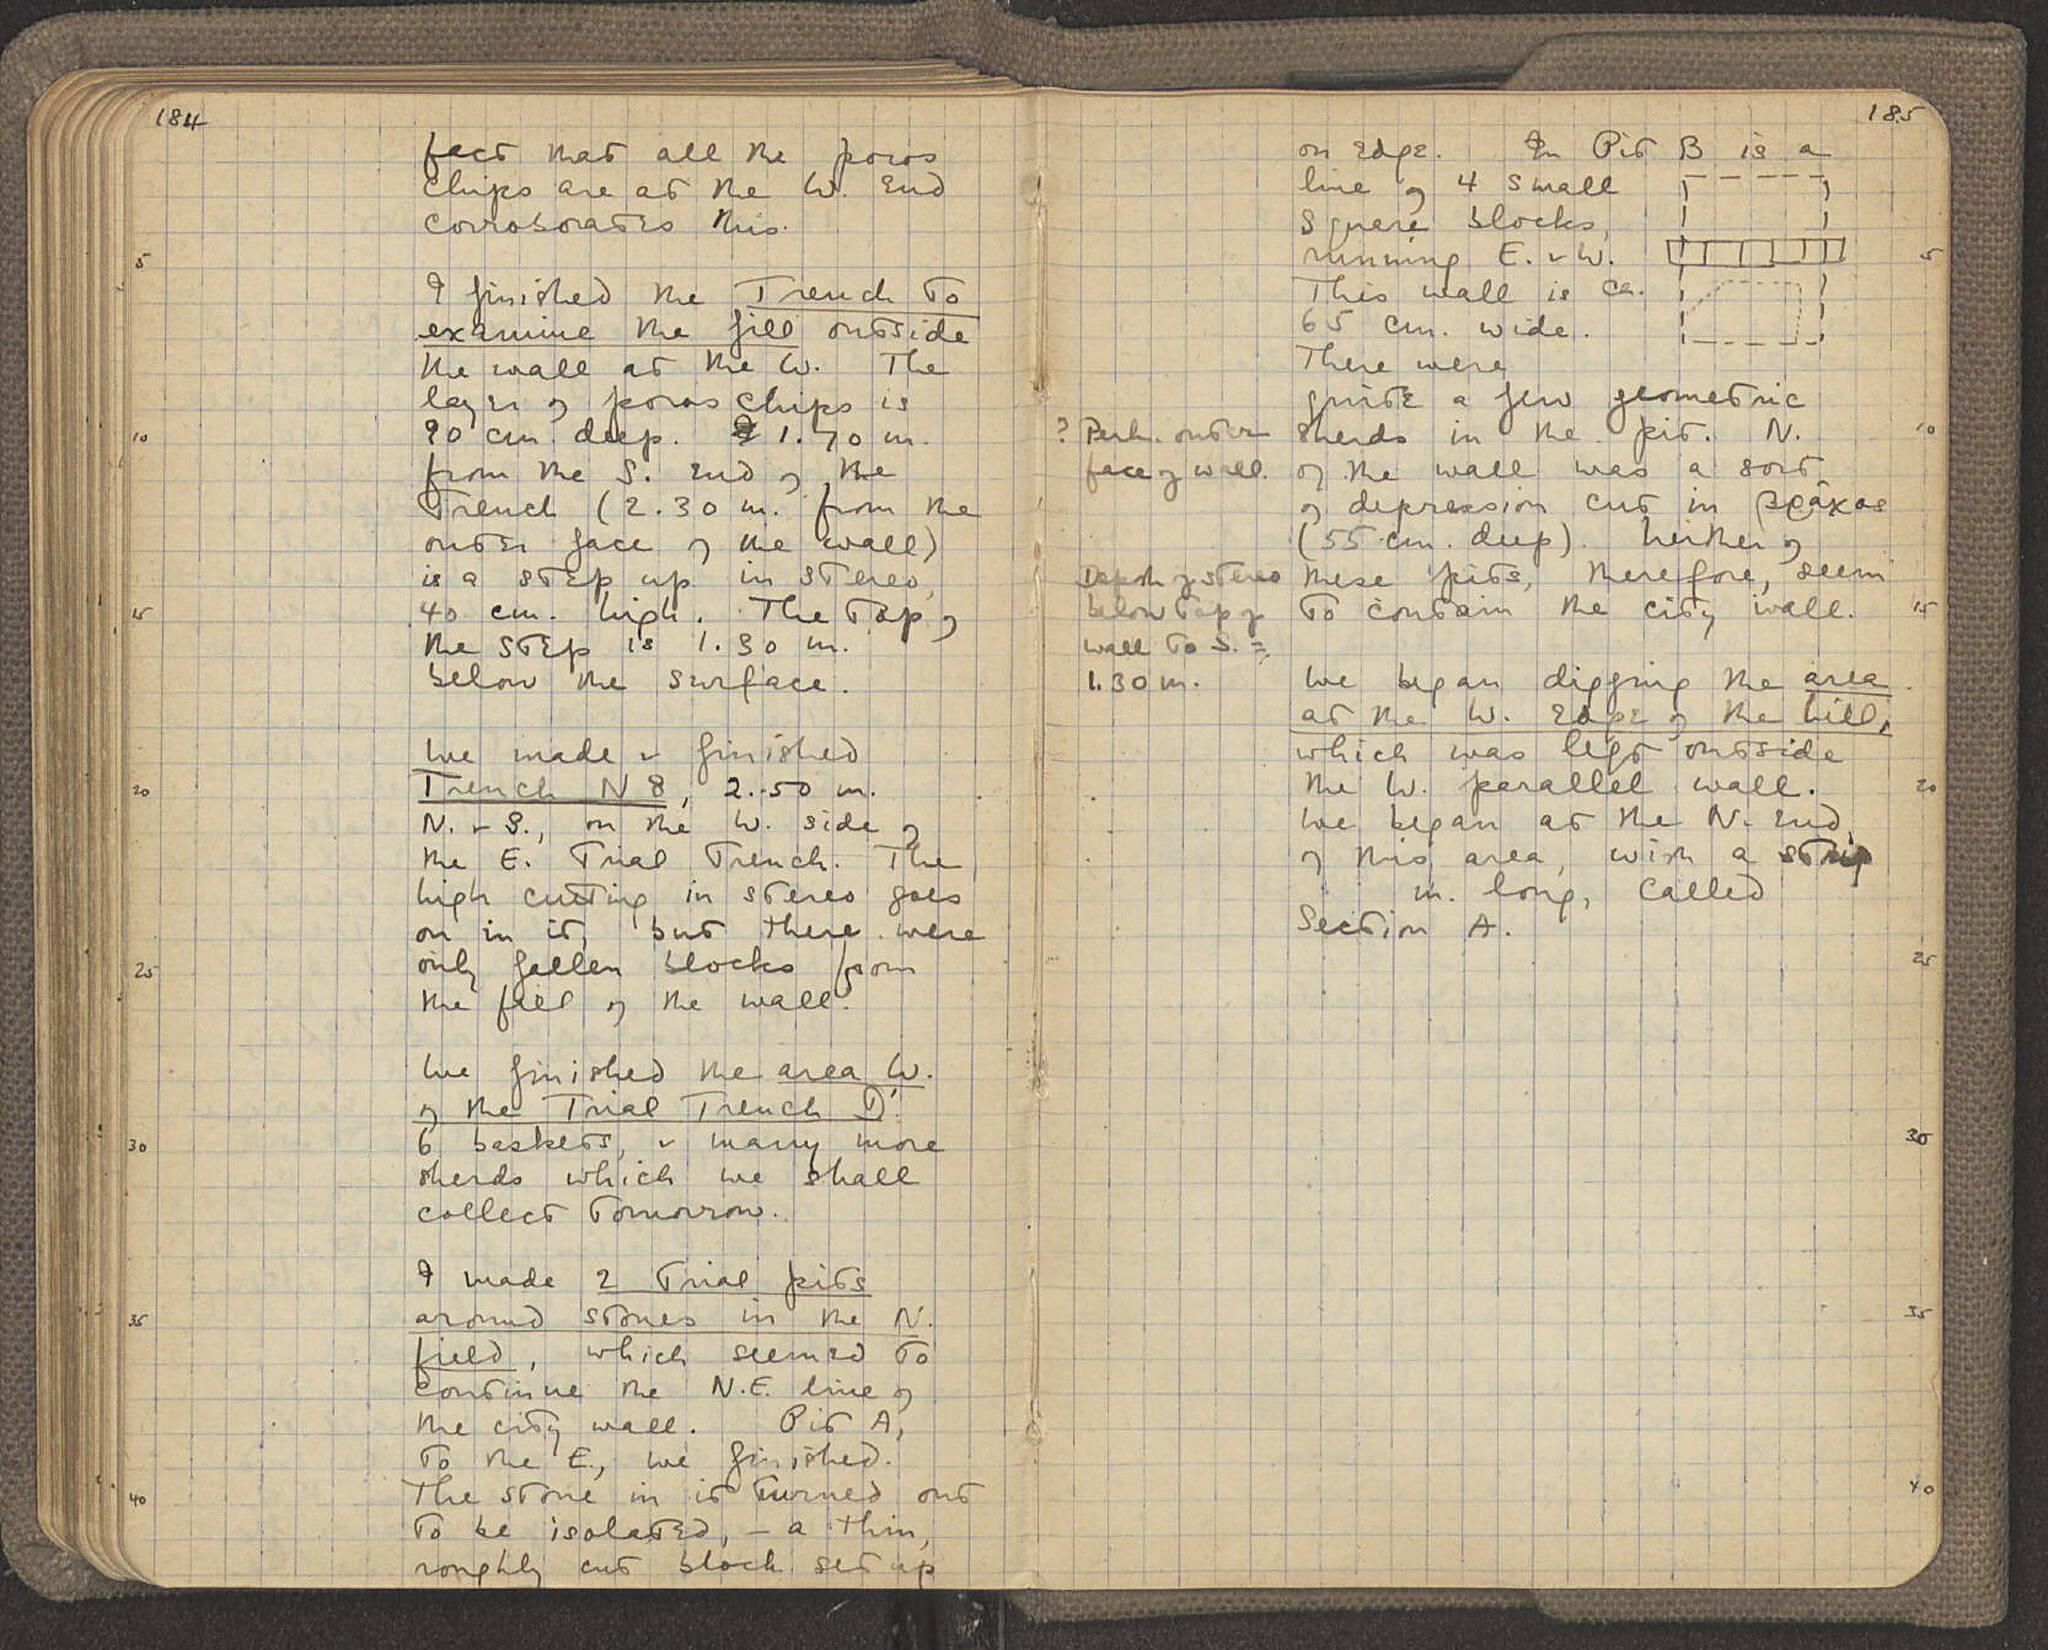 184
fact that all the poros
chips are at the W. end
corroborates this.
5
I finished the Trench to
examine the fill outside
the wall at the W. The
layer of poros chips is
10
90 cm. deep. 1.70 m.
from the S. end of the
Trench (2.30 m. from the
outer face of the wall)
is a step up in stereo,
15
40 cm. high. The top of
the step is 1.30 m.
below the surface.
We made & finished
20
Trench N 8, 2.50 m.
N. & S., on the W. side of
the E. Trial Trench. The
high cutting in stereo goes
on in it, but there were
25
only fallen blocks from
the fill of the wall.
We finished the area W.
of the Trial Trench D.
30
6 baskets, & many more
sherds which we shall
collect tomorrow.
I made 2 Trial pits
35
around stones in the N.
field, which seemed to
continue the N.E. line of
the city wall. Pit A,
to the E., we finished.
40
The stone in it turned out
to be isolated, – a thin,
roughly cut block set up
185
on edge. In Pit B is a
line of 4 small
square blocks,
5
running E. & W.
This wall is ca.
65 cm. wide.
There were
quite a few geometric
10
sherds in the pit. N.
of the wall was a sort
of depression cut in βράχος
(55 cm. deep). Neither of
these pits, therefore, seem
15
to contain the city wall.
? Perh. outer
face of wall.
Depth of stereo
below top of
wall to S. =
1.30 m.
We began digging the area
at the W. edge of the hill,
which was left outside
20
the W. parallel wall.
We began at the N. end
of this area, with a strip
m. long, called
Section A.
25
30
35
40